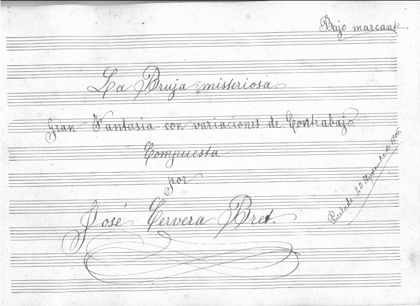 Bajo marcant
La Bruja misteriosa
Gran Fantasía con variaciones de Contrabajo
Compuesta
por
José Cervera Bret.